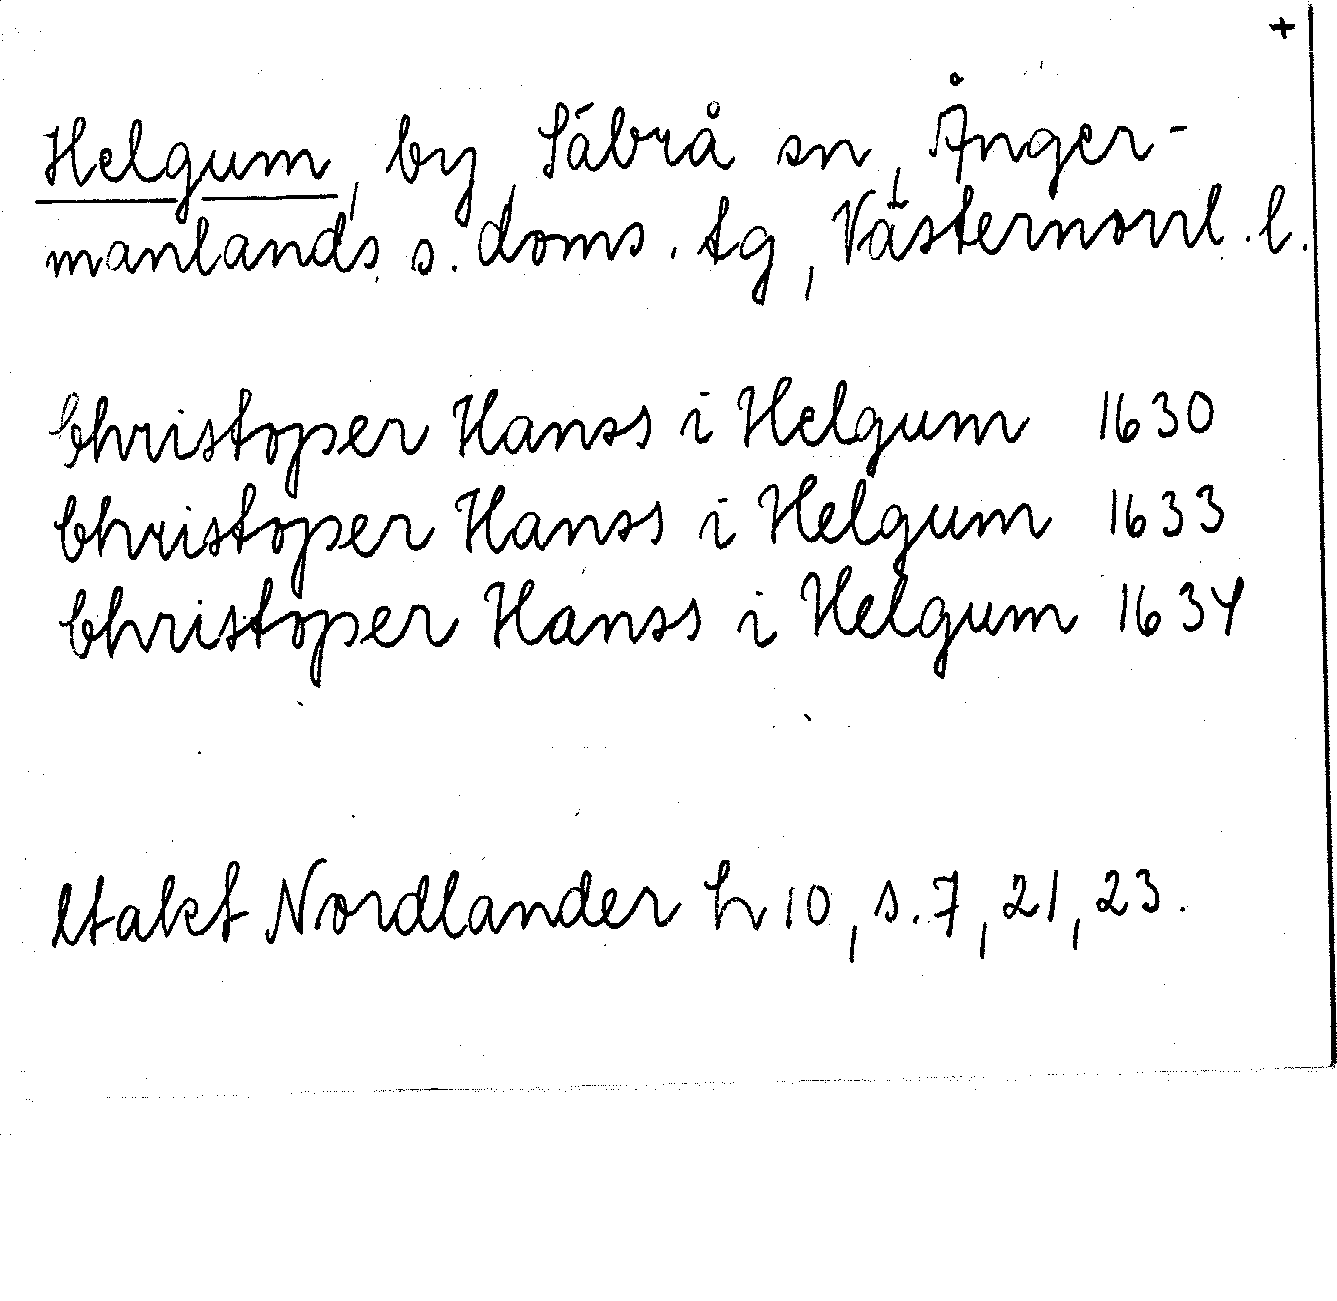 +
Helgum, by, Säbrå sn, Ånger-
manlands s. doms. tg, Västernorrl. l.
Christoper Hanss i Helgum 1630
Christoper Hanss i Helgum 1633
Christoper Hanss i Helgum 1634
Utakt Nordlander h 10, s. 7, 21, 23.